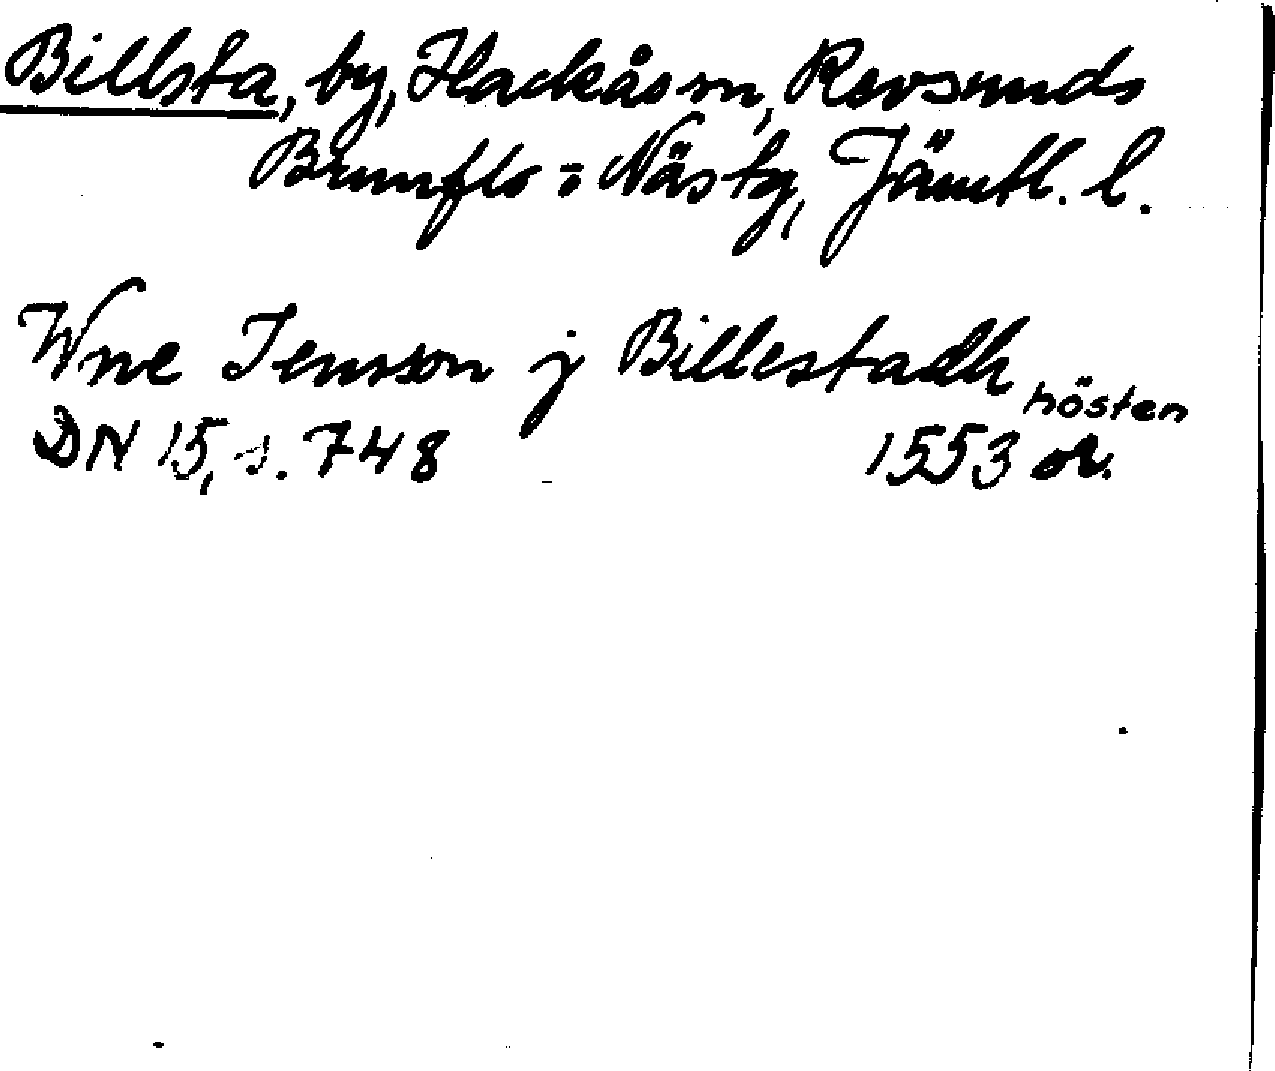 Billsta, by, Hackås sn, Revsunds
Brunflo o Näs tg, Jämtl. l.
Wne Jensson j Billestadh
hösten
DN 15, s. 748 1553 or.